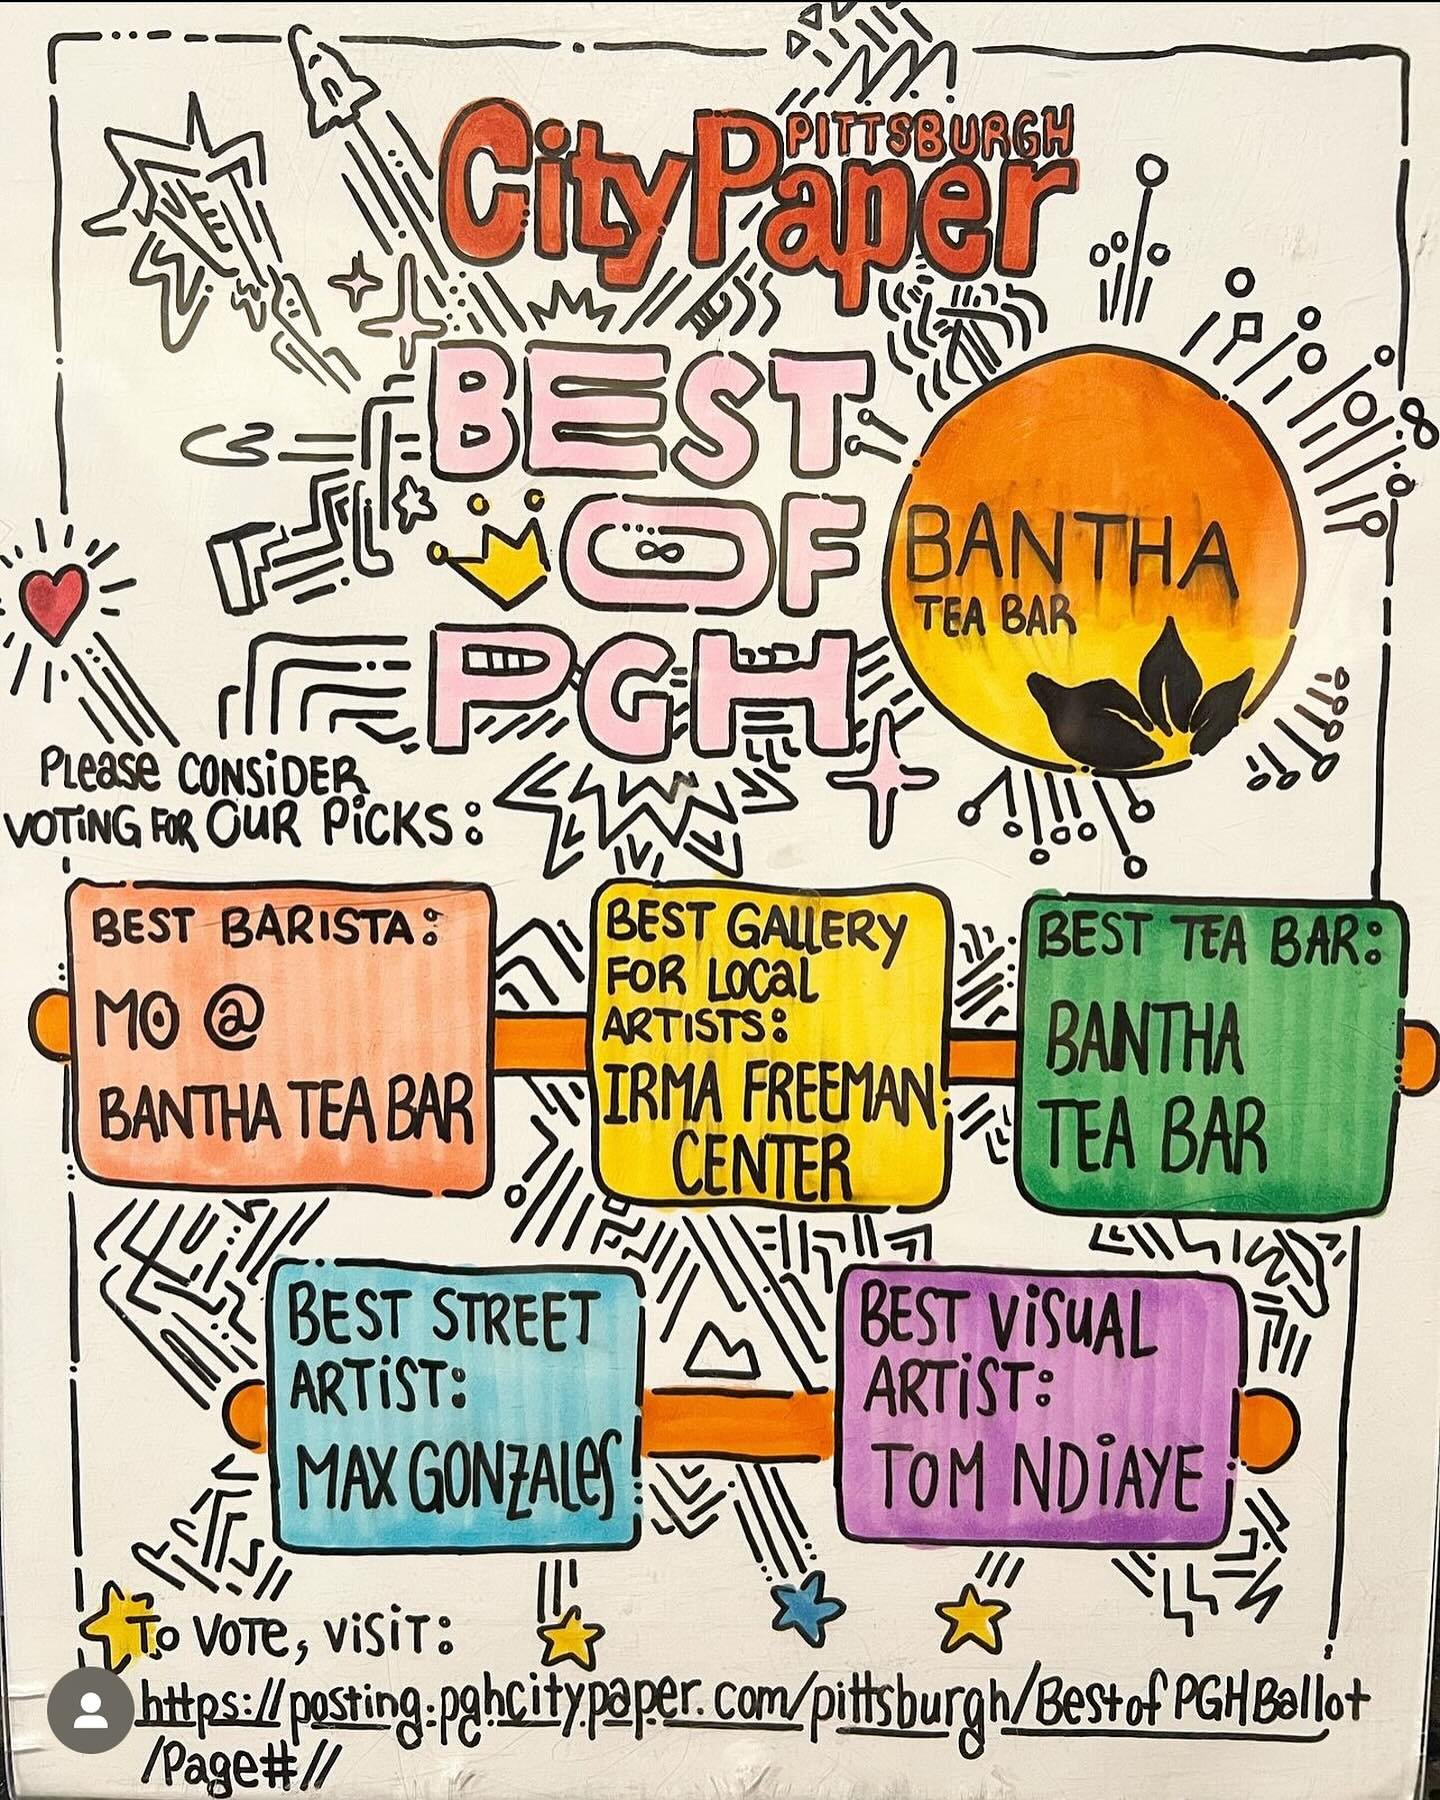 PITTSBURGH
City Paper
BEST
OF
PGH
BANTHA
TEA BAR
Please CONSiDER
VOTiNG FOR OUR PiCKS:
BEST BARISTA:
MO @
BANTHA TEA BAR
BEST GALLERY
FOR LOCaL
ARTISTS:
IRMA FREEMAN
CENTER
BEST TEA BAR:
BANTHA
TEA BAR
BEST STREET
ARTiST:
MAX GONZALeS
BEST ViSUAL
ARTiST:
TOM NDiAYE
To VOTE, ViSiT:
https://posting.pghcitypaper.com/pittsburgh/BestofPGHBallot
/Page#//